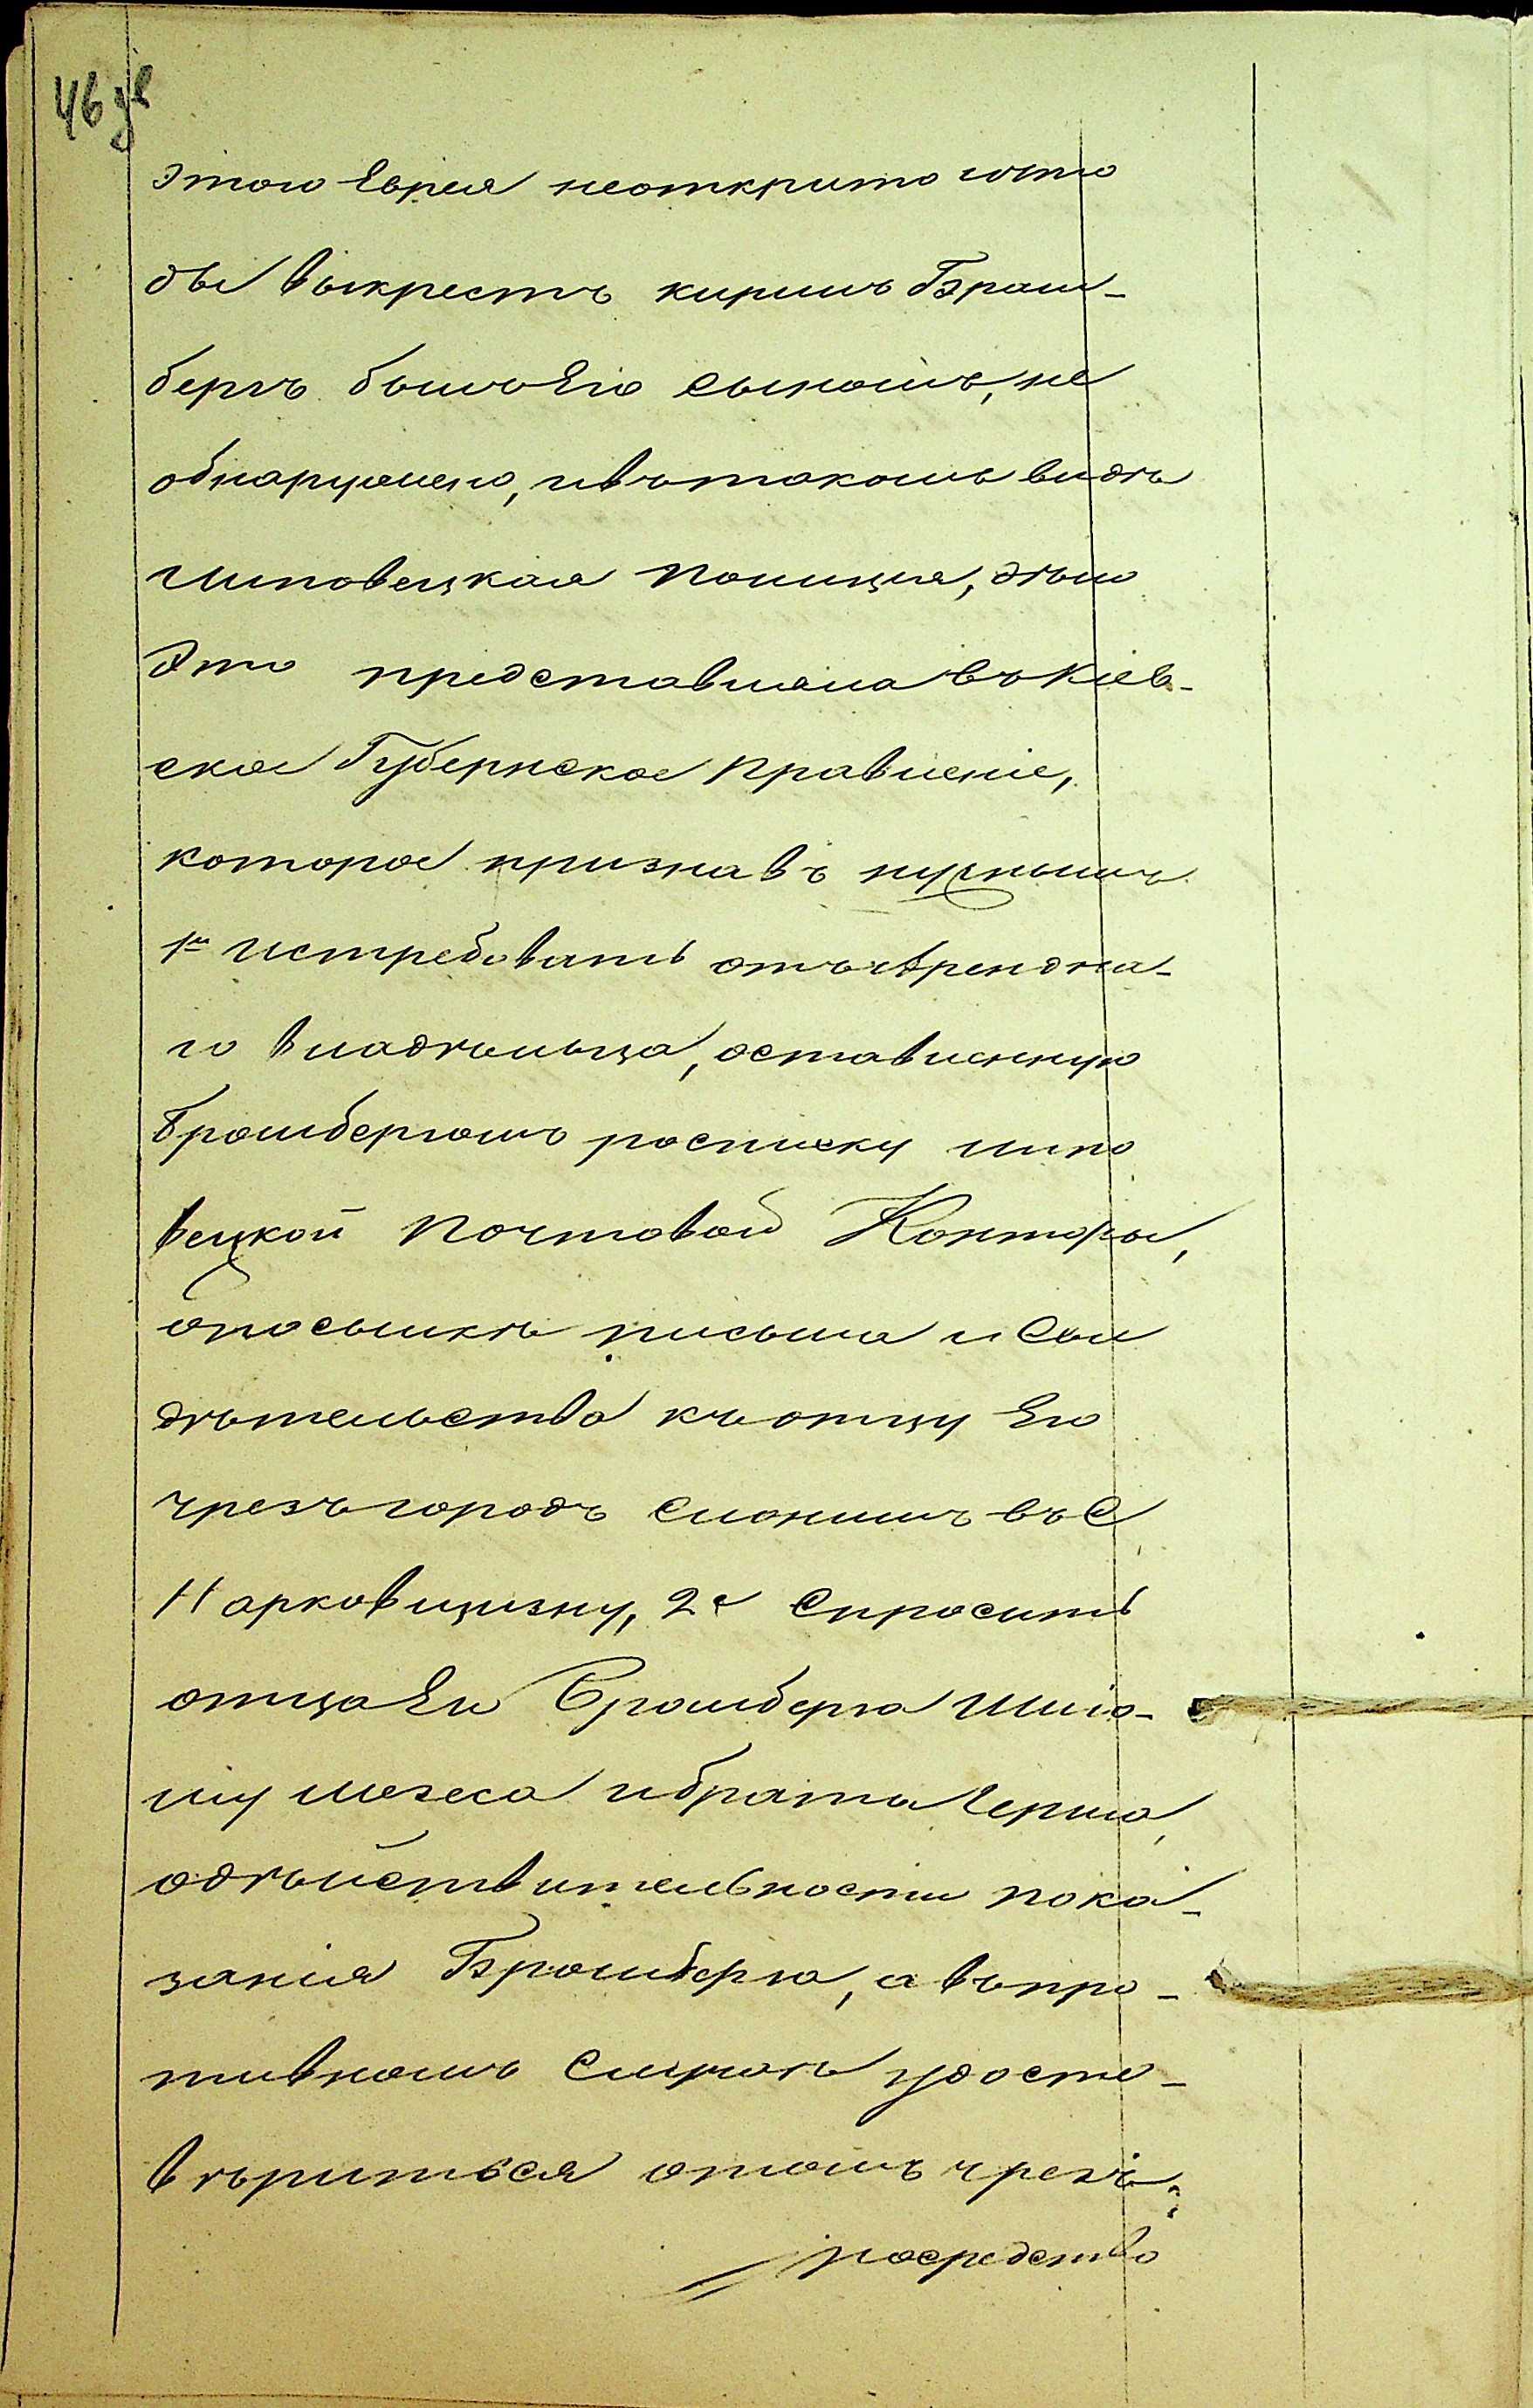 46 зв
этого Еврея неоткрыто что
бы выкрестъ киришъ Брам-
бергъ былъ Его сыномъ, не
обнаружено, ивътакомъ видѣ
липовецкая полиція, дѣло
Это представляла въ Кіев-
ское Губернское правленіе,
которое признавъ нужнымъ
1е истребовать отъ Арендна-
го владѣльца, оставленную
Бромбергомъ росписку липо
вецкой почтовой Конторы,
опосылкѣ письма и Сви
дѣтельства къ отцу Его
чрезъ городъ Слонимъ въ С
Нарковщизну, 2е Спросить
отца Его Бромберга Шліо-
му Мозеса ибрата Герша,
одѣйствительности пока-
занія Бромберга, а въпро-
тивномъ Случаѣ удосто-
вѣриться отомъ чрезъ
посредство